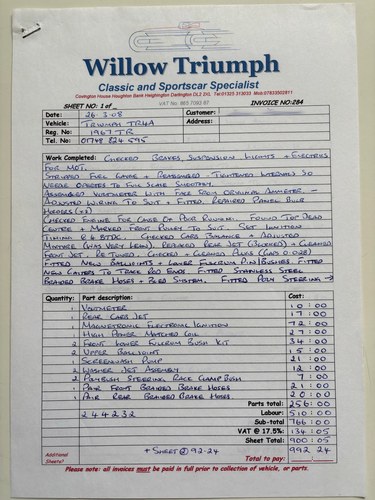 Willow Triumph
Classic and Sportscar Specialist
Covington House Houghton Bank Heighington Darlington DL2 2XL Tel:01325 313033 Mob:07833502811
SHEET NO: 1 of
VAT No 863 7092 67
INVOICE NO:284
Date: 26-3-08 Customer:
Vehicle: TRIUMPH TR4A Address:
Reg. No: 1967 TR
Tel. No: 01748 824 595
Work Completed: CHECKED BRAKES, SUSPENSION, LIGHTS + ELECTRICS
FOR MOT.
STRIPPED FUEL GAUGE + REASSEMBLED - TIGHTENED INTERNALS SO
NEEDLE OPERATES TO FULL SCALE SMOOTHLY.
ASSEMBLED VOLTMETER WITH FACE FROM ORIGINAL AMMETER. -
ADJUSTED WIRING TO SUIT + FITTED. REPAIRED PANEL BULB
HOLDERS
CHECKED ENGINE FOR CAUSE OF POOR RUNNING. FOUND TOP DEAD
CENTRE + MARKED FRONT PULLEY TO SUIT. SET IGNITION
TIMING @ 6 BTDC. CHECKED CARB BALANCE + ADJUSTED
MIXTURE (WAS VERY LEAN). REPLACED REAR JET (BLOCKED) + CLEANED
FRONT JET. RE TUNED. CHECKED + CLEANED PLUGS (GAP 0.028)
FITTED NEW BALLJOINTS + LOWER FULCRUM PIN/BUSHES. FITTED
NEW GAITERS TO TRACK ROD ENDS. FITTED STAINLESS STEEL
BRAIDED BRAKE HOSES + BLED SYSTEM. FITTED POLY STEERING →
Quantity: Part description: Cost:
1 VOLTMETER 10:00
1 REAR CARB JET 17:00
1 MAGNETRONIC ELECTRONIC IGNITION 72:00
1 HIGH POWER MATCHED COIL 27:00
2 FRONT LOWER FULCRUM BUSH KIT 34:00
2 UPPER BALLJOINT 15:00
1 SCREENWASH PUMP 21:00
2 WASHER JET ASSEMBLY 12:00
2 POLYBUSH STEERING RACK CLAMP BUSH 7:00
1 PAIR FRONT BRAIDED BRAKE HOSES 21:00
1 PAIR REAR BRAIDED BRAKE HOSES 20:00
Parts total: 256:00
244232 Labour: 510:00
Sub-total 766:00
VAT @ 17.5%: 134:05
Sheet Total: 900:05
Additional Sheets? + SHEET @ 92.24 Total to pay: 992 24
Please note: all invoices must be paid in full prior to collection of vehicle, or parts.